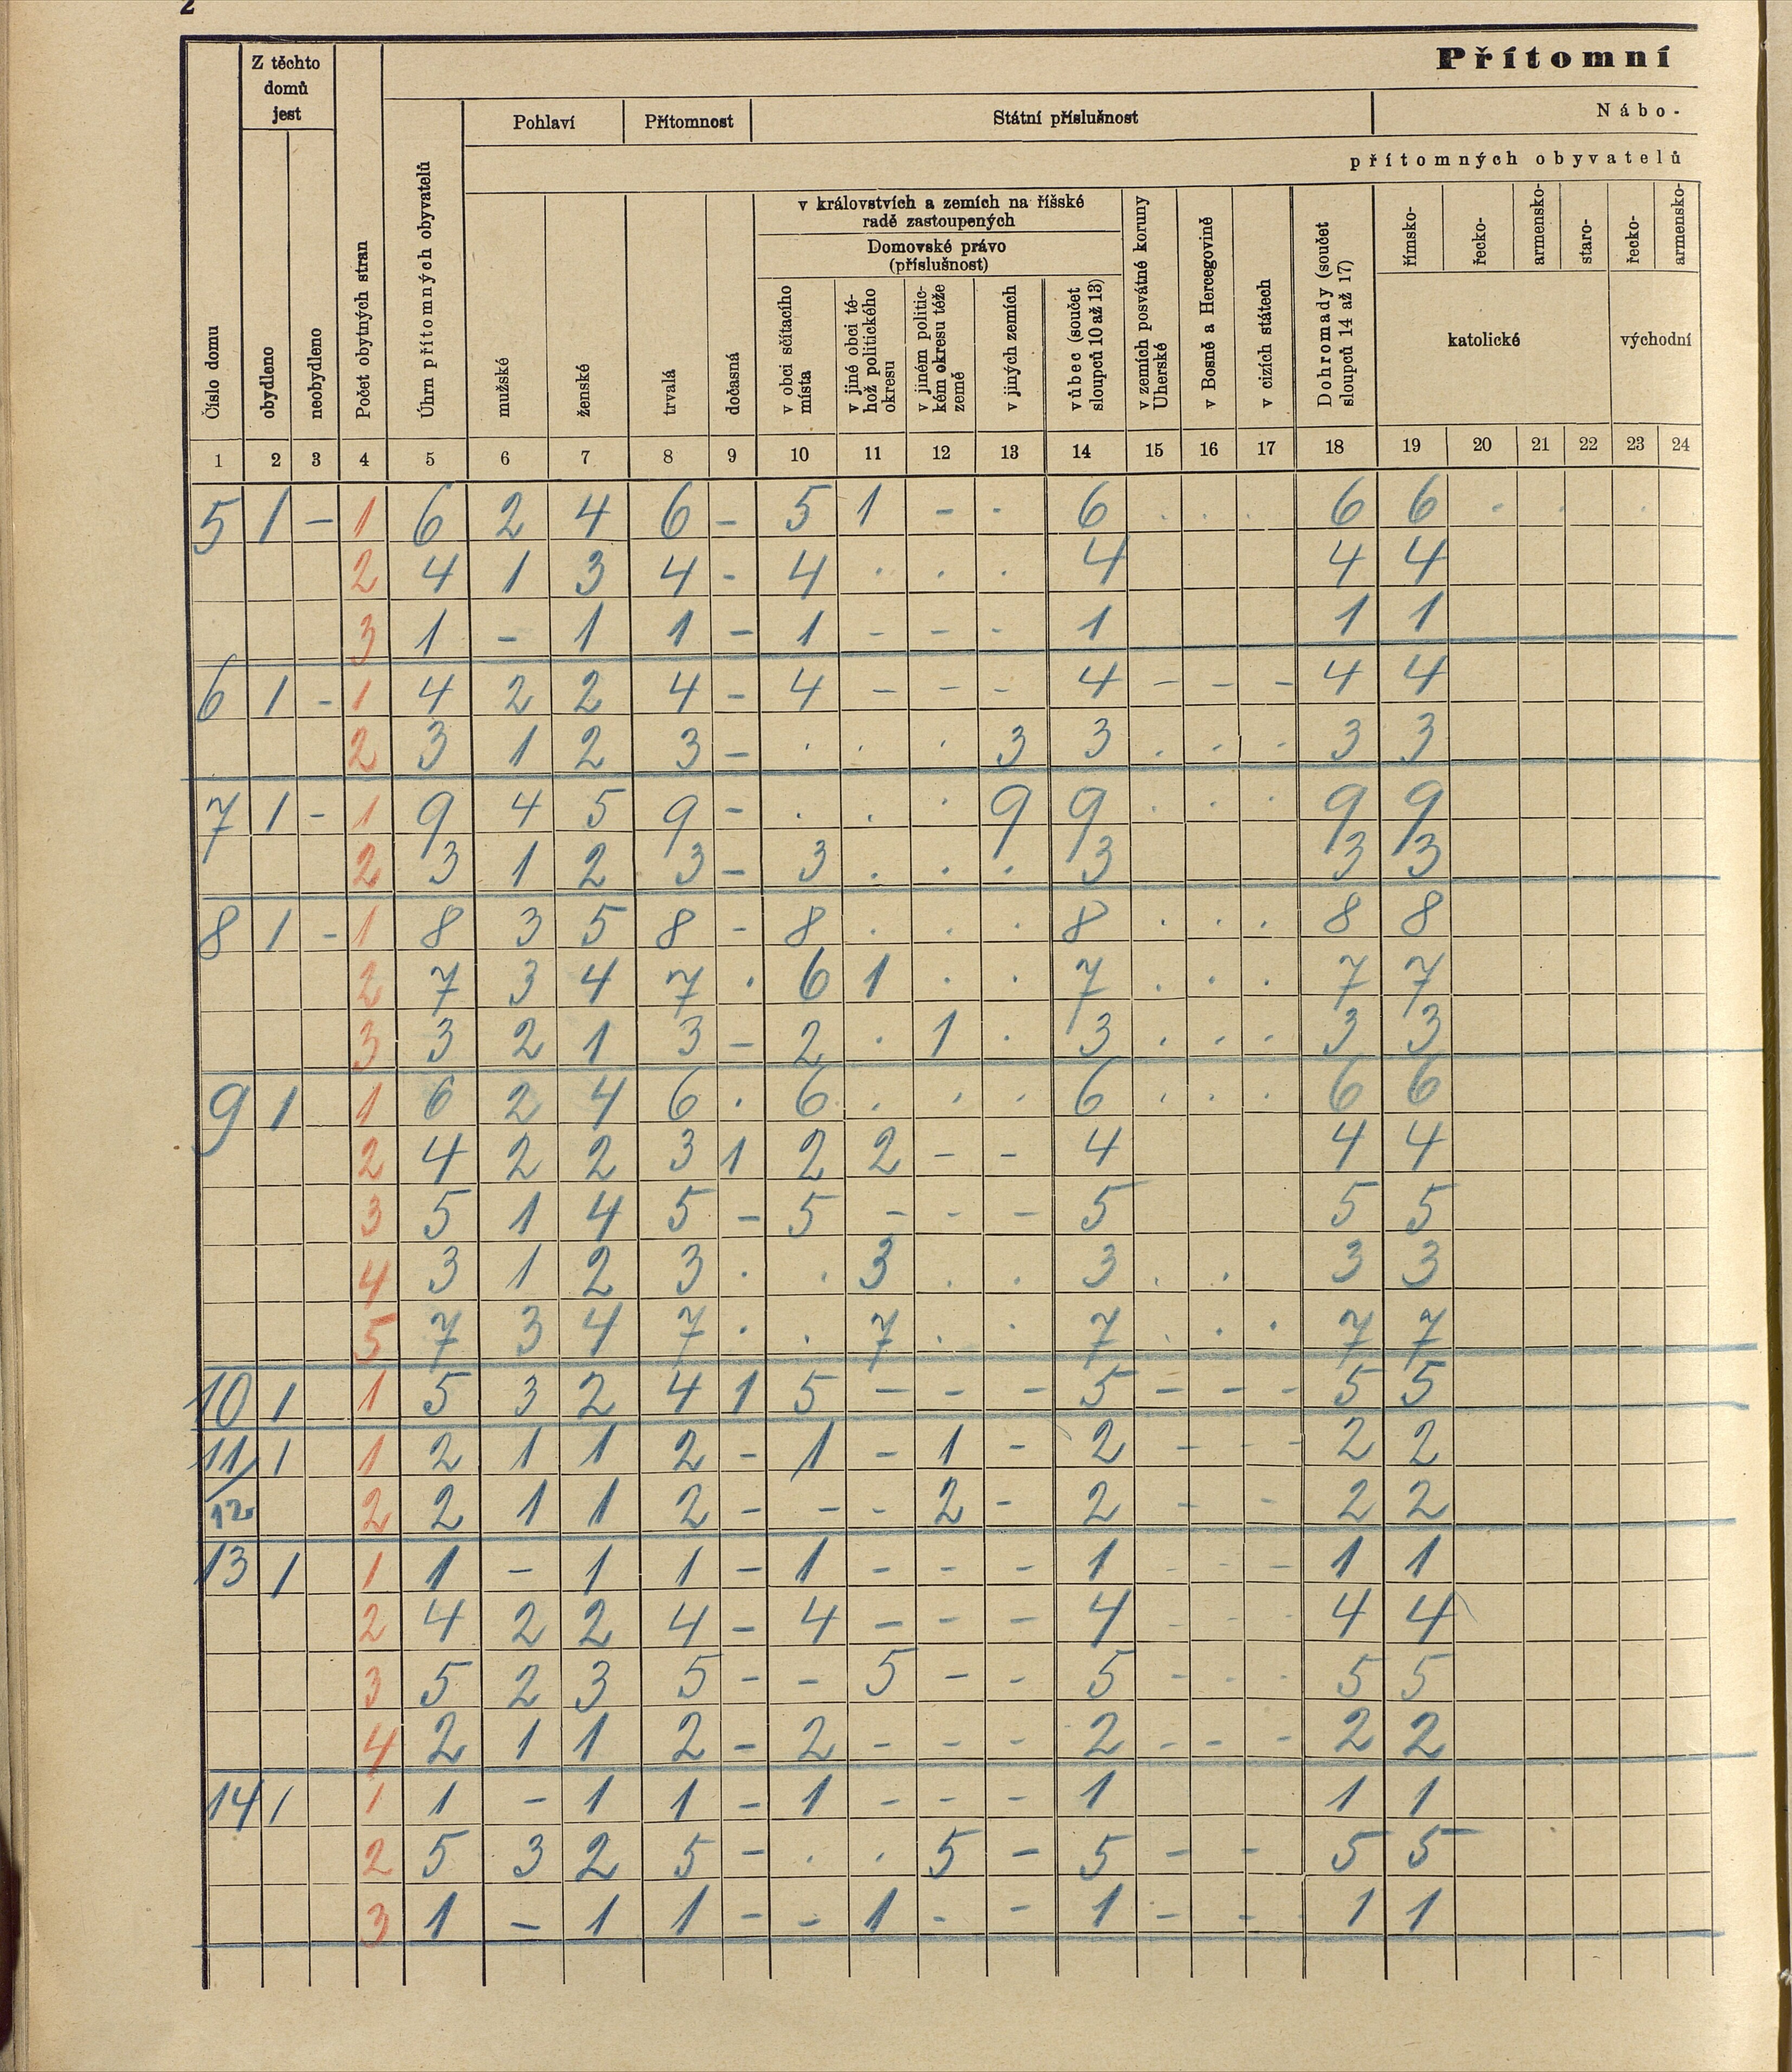 2
Přítomní
Z těchto domů jest
Pohlaví Přítomnost Státní příslušnost Nábo-
přítomných obyvatelů
v královstvích a zemích na říšské radě zastoupených
Domovské právo (příslušnost)
Číslo domu
obydleno
neobydleno
Počet obytných stran
Úhrn přítomných obyvatelů
mužské
ženské
trvalá
dočasná
v obci sčítacího místa
v jiné obci té-hož politického okresu
v jiném politic-kém okresu téže země
v jiných zemích
vůbec (součet sloupců 10 až 13)
v zemích posvátné koruny Uherské
v Bosně a Hercegovině
v cizích státech
Dohromady (součet sloupců 14 až 17)
římsko-
řecko-
armensko-
staro-
řecko-
armensko-
katolické východní
1 2 3 4 5 6 7 8 9 10 11 12 13 14 15 16 17 18 19 20 21 22 23 24
5 1 - 1 6 2 4 6 - 5 1 - . 6 . . . 6 6 . . .
2 4 1 3 4 - 4 . . . 4 4 4
3 1 - 1 1 - 1 - - - 1 1 1
6 1 - 1 4 2 2 4 - 4 - - - 4 - - - 4 4
2 3 1 2 3 - . . . 3 3 . . . 3 3
7 1 - 1 9 4 5 9 - . . . 9 9 . . . 9 9
2 3 1 2 3 - 3 . . . 3 3 3
8 1 - 1 8 3 5 8 - 8 . . . 8 . . . 8 8
2 7 3 4 7 . 6 1 . . 7 . . . 7 7
3 3 2 1 3 - 2 . 1 . 3 . . . 3 3
9 1 1 6 2 4 6 . 6 . . . 6 . . . 6 6
2 4 2 2 3 1 2 2 - - 4 4 4
3 5 1 4 5 - 5 - - - 5 5 5
4 3 1 2 3 . . 3 . . 3 . . 3 3
5 7 3 4 7 . . 7 . . 7 . . . 7 7
10 1 1 5 3 2 4 1 5 - - - 5 - - - 5 5
11/ 1 1 2 1 1 2 - 1 - 1 - 2 - - - 2 2
12 2 2 1 1 2 - - - 2 - 2 - - 2 2
13 1 1 1 - 1 1 - 1 - - - 1 - - - 1 1
2 4 2 2 4 - 4 - - - 4 - - - 4 4
3 5 2 3 5 - - 5 - - 5 - - - 5 5
4 2 1 1 2 - 2 - - - 2 - - - 2 2
14 1 1 1 - 1 1 - 1 - - - 1 1 1
2 5 3 2 5 - . . 5 - 5 - - 5 5
3 1 - 1 1 - - 1 - - 1 - - 1 1